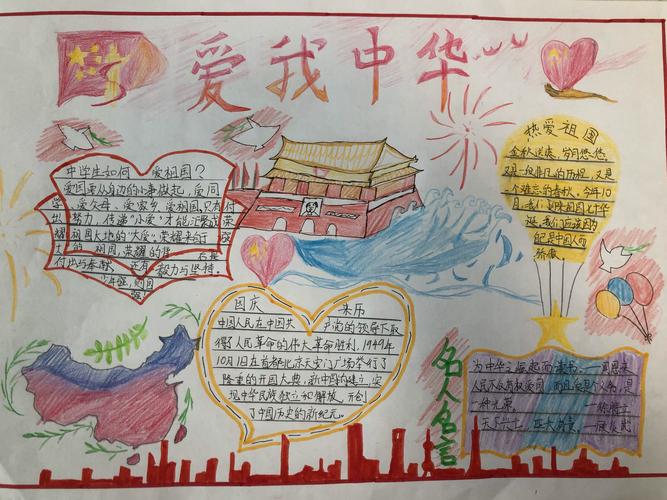 爱我中华
中学生如何 爱祖国？
爱国要从身边的小事做起，爱同
学，爱父母，爱家乡，爱祖国，只有付
出努力，传递“小爱”才能汇聚成荣
耀祖国大地的“大爱”，荣耀来自于强
的 祖国，荣耀的
付出与奉献 毅力与坚持。
少年强，则国
强
热爱祖国
金秋送爽，岁月悠悠，
又是一段难忘的历程，又是
一个难忘的金秋，今年10
月，我们
诞，我们应该因为
自己是中国人而
骄傲。
国庆 来历
中国人民在中国共产党的领导下取
得了人民革命的伟大革命胜利，1949年
10月1日在首都北京天安门广场举行了
隆重的开国大典，新中国的建立，实
现中华民族独立和解放，开创
了中国历史的新纪元。
名人名言
为中华之崛起而读书。——周恩来
人民不仅有权爱国，而且爱国是个义务，是
一种光荣。
天下兴亡，匹夫有责。